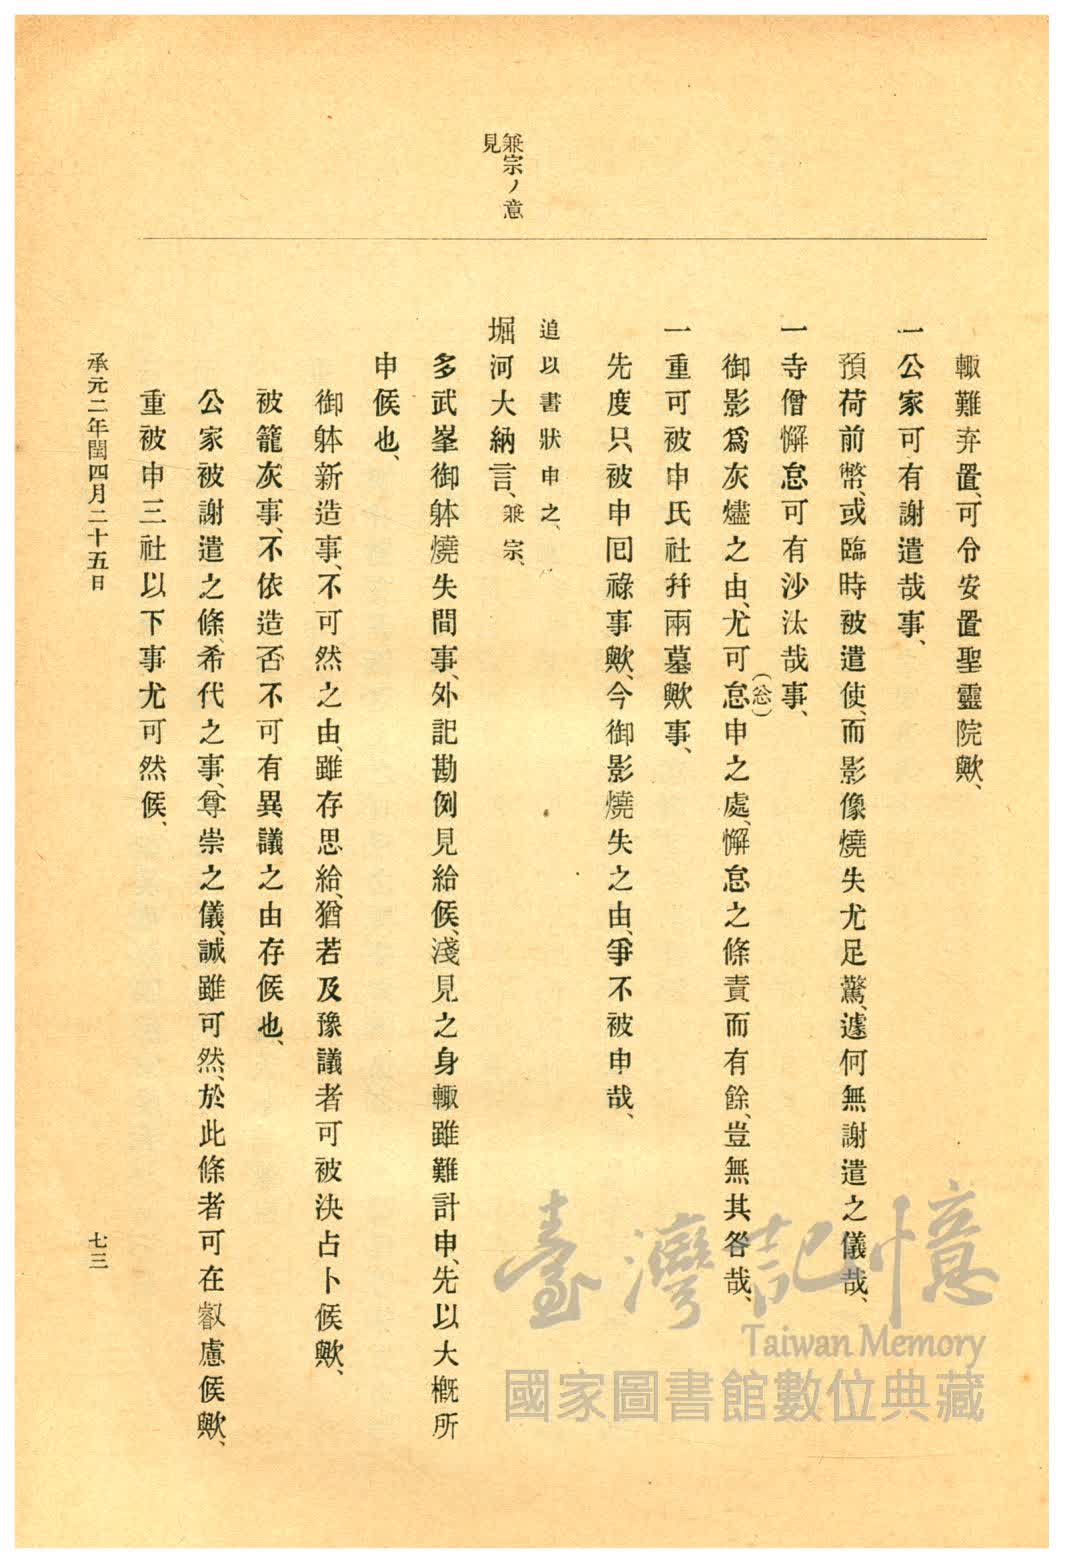 兼宗ノ意
見
輙難弃置、可令安置聖靈院歟、
一公家可有謝遣哉事、
預荷前幣、或臨時被遣使、而影像燒失尤足驚、遽何無謝遣之儀哉、
一寺僧懈怠可有沙汰哉事、
御影爲灰燼之由、尤可怠(忩)申之處、懈怠之條責而有餘、豈無其咎哉、
一重可被申氏社幷兩墓歟事、
先度只被申回祿事歟、今御影燒失之由、爭不被申哉、
追以書狀申之、
堀河大納言、兼宗、
多武峯御躰燒失間事、外記勘例見給候、淺見之身輙雖難計申、先以大槪所
申候也、
御躰新造事、不可然之由、雖存思給、猶若及豫議者可被決占卜候歟、
被籠灰事、不依造否不可有異議之由存候也、
公家被謝遣之條、希代之事、尊崇之儀、誠雖可然、於此條者可在叡慮候歟、
重被申三社以下事尤可然候、
承元二年閏四月二十五日
七三
臺灣記憶
Taiwan Memory
國家圖書館數位典藏